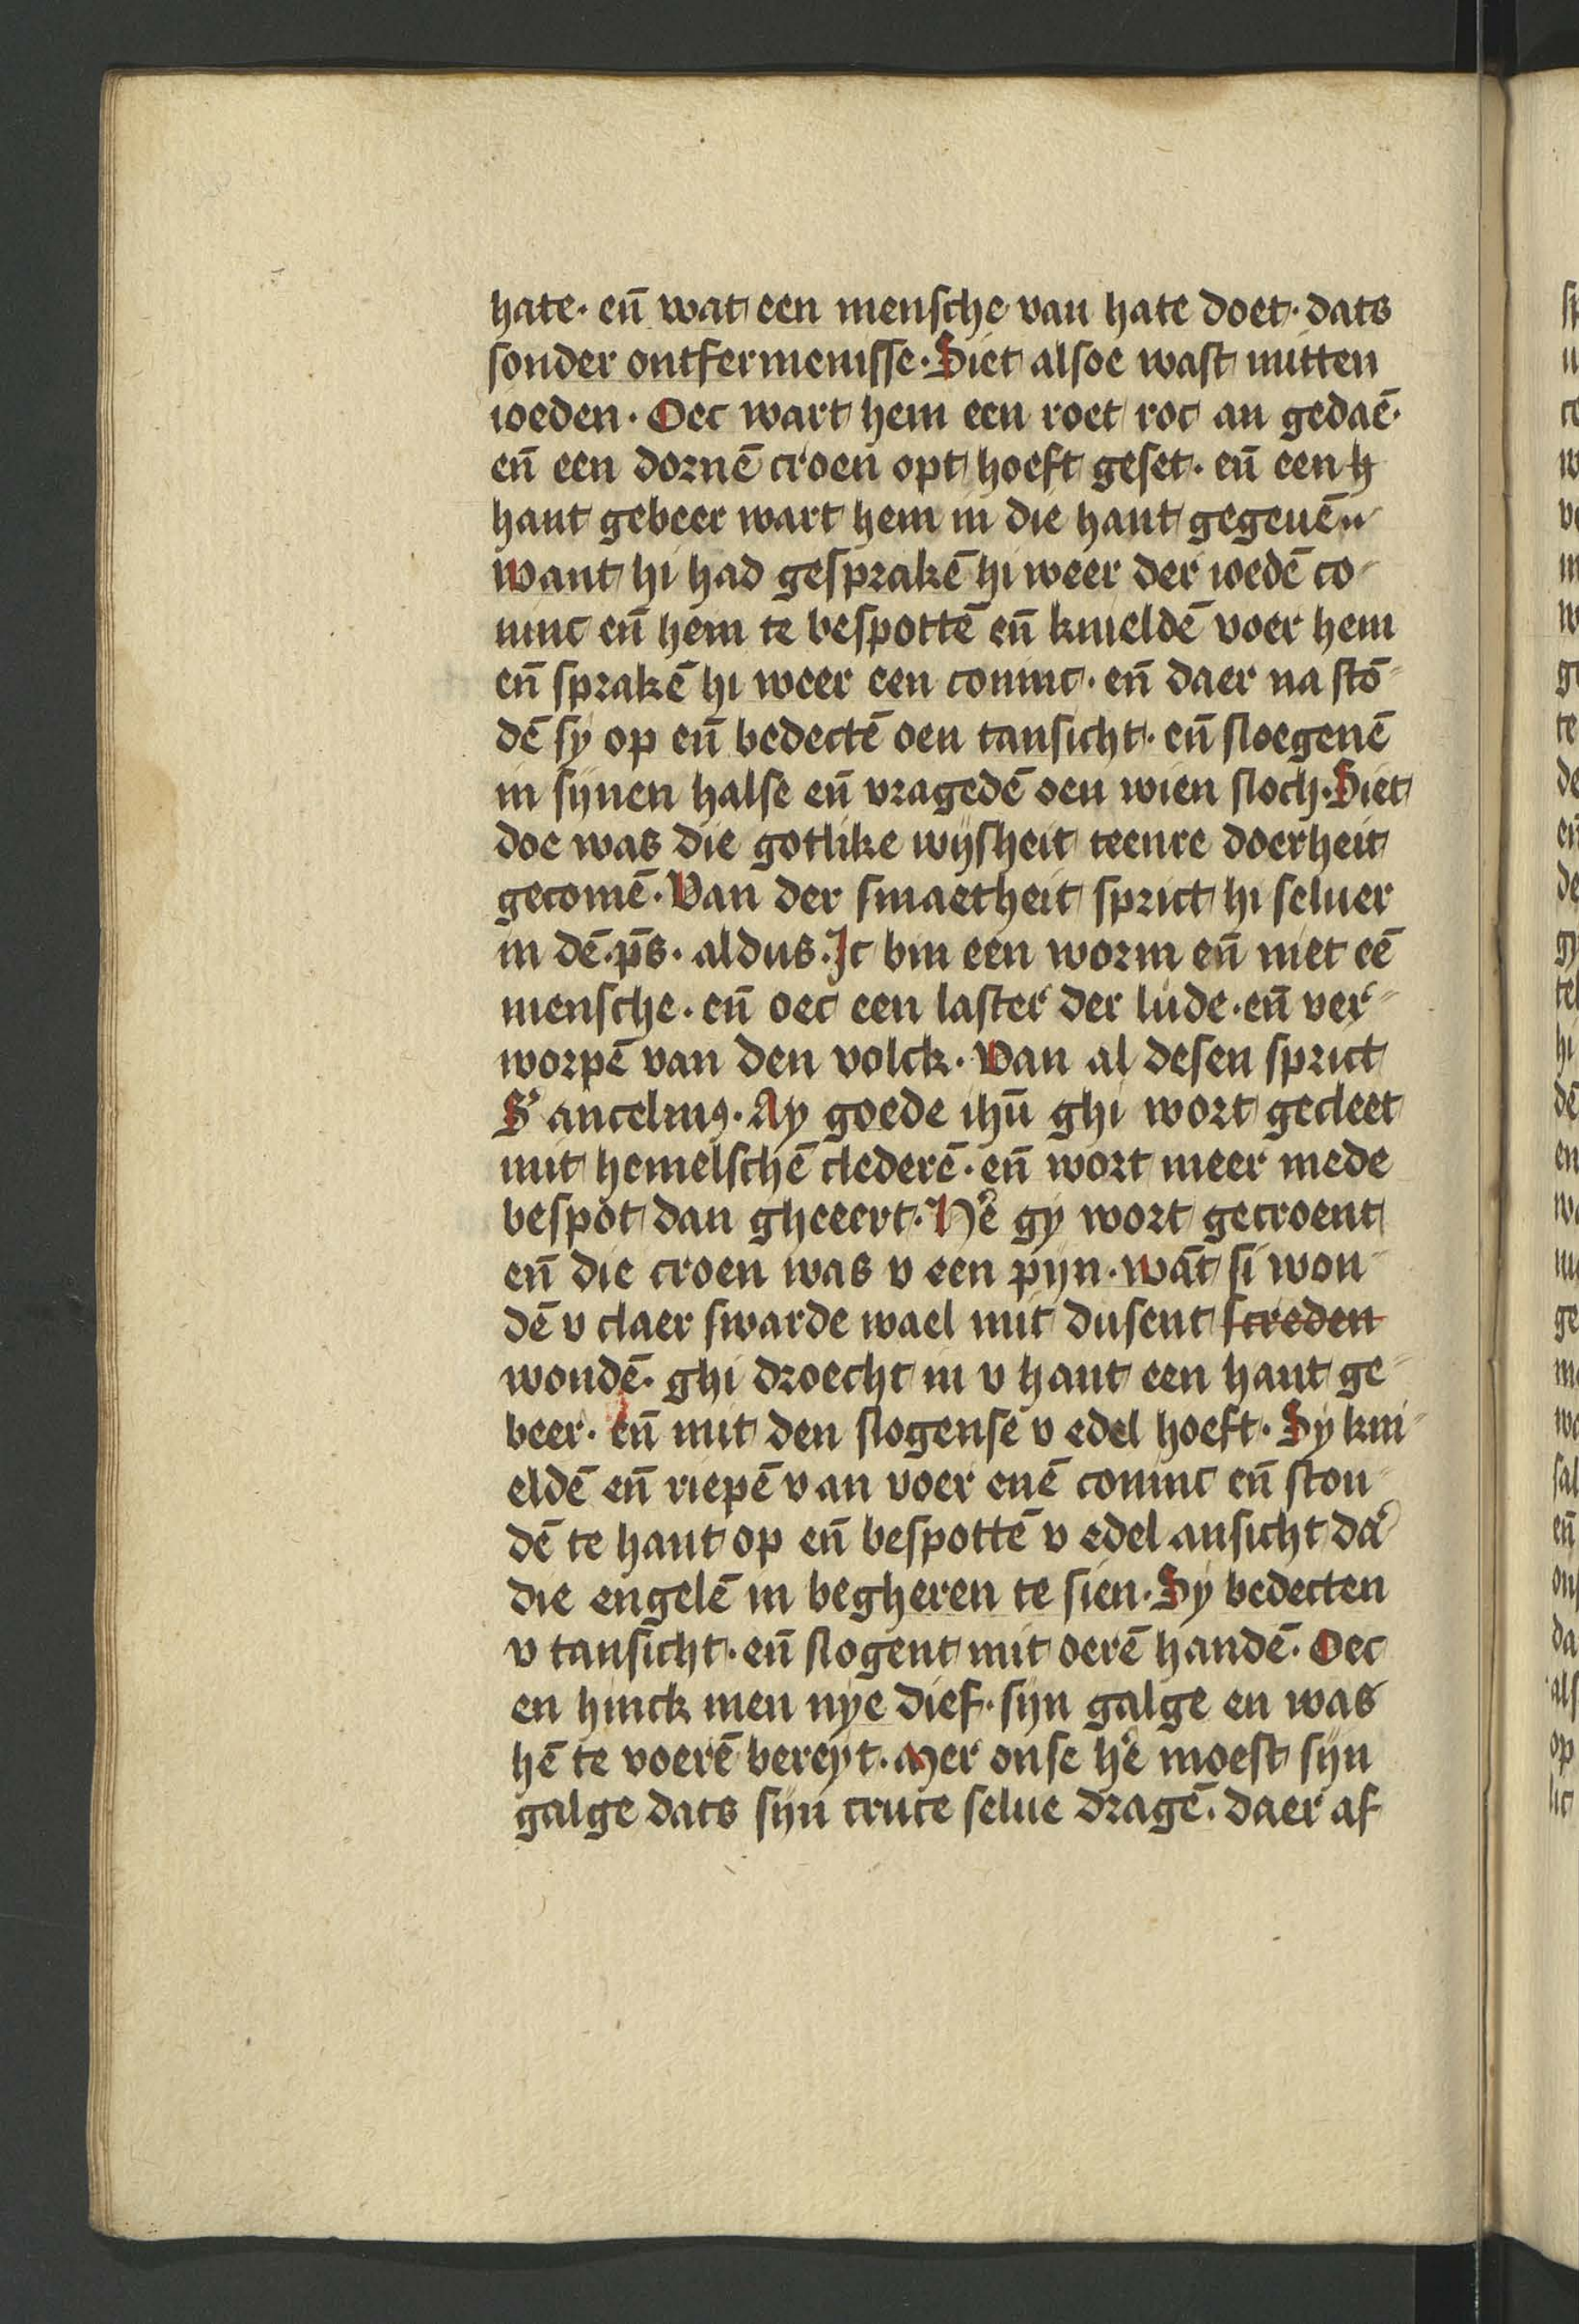 hate · en̄ wat een mensche van hate doet · dats
sonder ontfermenisse · Siet alsoe wast mitten
ioeden · Oec wart hem een roet roc an gedaē ·
en̄ een dornē croen opt hoeft geset · en̄ een h
hant gebeer wart hem in die hant gegeuē
want hi had gesprakē hi weer der ioedē co-
ninc en̄ hem te bespottē en̄ knieldē voer hem
en̄ sprakē hi weer een coninc · en̄ daer na stō-
dē sy op en̄ bedectē oen tansicht · en̄ sloegenē
in sijnen halse en̄ vragedē oen wien sloch · Siet
doe was die gotlike wijsheit teenre doerheit
gecomē · Van der smaetheit sprict hi seluer
in dē · ps̄ · aldus · Ic bin een worm en̄ niet eē
mensche · en̄ oec een laster der lude · en̄ ver-
worpē van den volck · Van al desen sprict
S' ancelmꝰ · Ay goede ihū ghi wort gecleet
mit hemelschē clederē · en̄ wort meer mede
bespot dan gheeert · He᷑ gy wort gecroent
en̄ die croen was v een pijn · wāt si won-
dē v claer swarde wael mit dusent screden
wondē · ghi droecht in v hant een hant ge-
beer · en̄ mit den slogense v edel hoeft · Sy kni-
eldē en̄ riepē v an voer enē coninc en̄ ston-
dē te hant op en̄ bespottē v edel ansicht da᷑
die engelē in begheren te sien · Sy bedecten
v tansicht · en̄ slogent mit oerē handē · Oec
en hinck men nye dief · sijn galge en was
hē te voerē bereyt · Mer onse he᷑ moest sijn
galge dats sijn cruce selue dragē · daer af